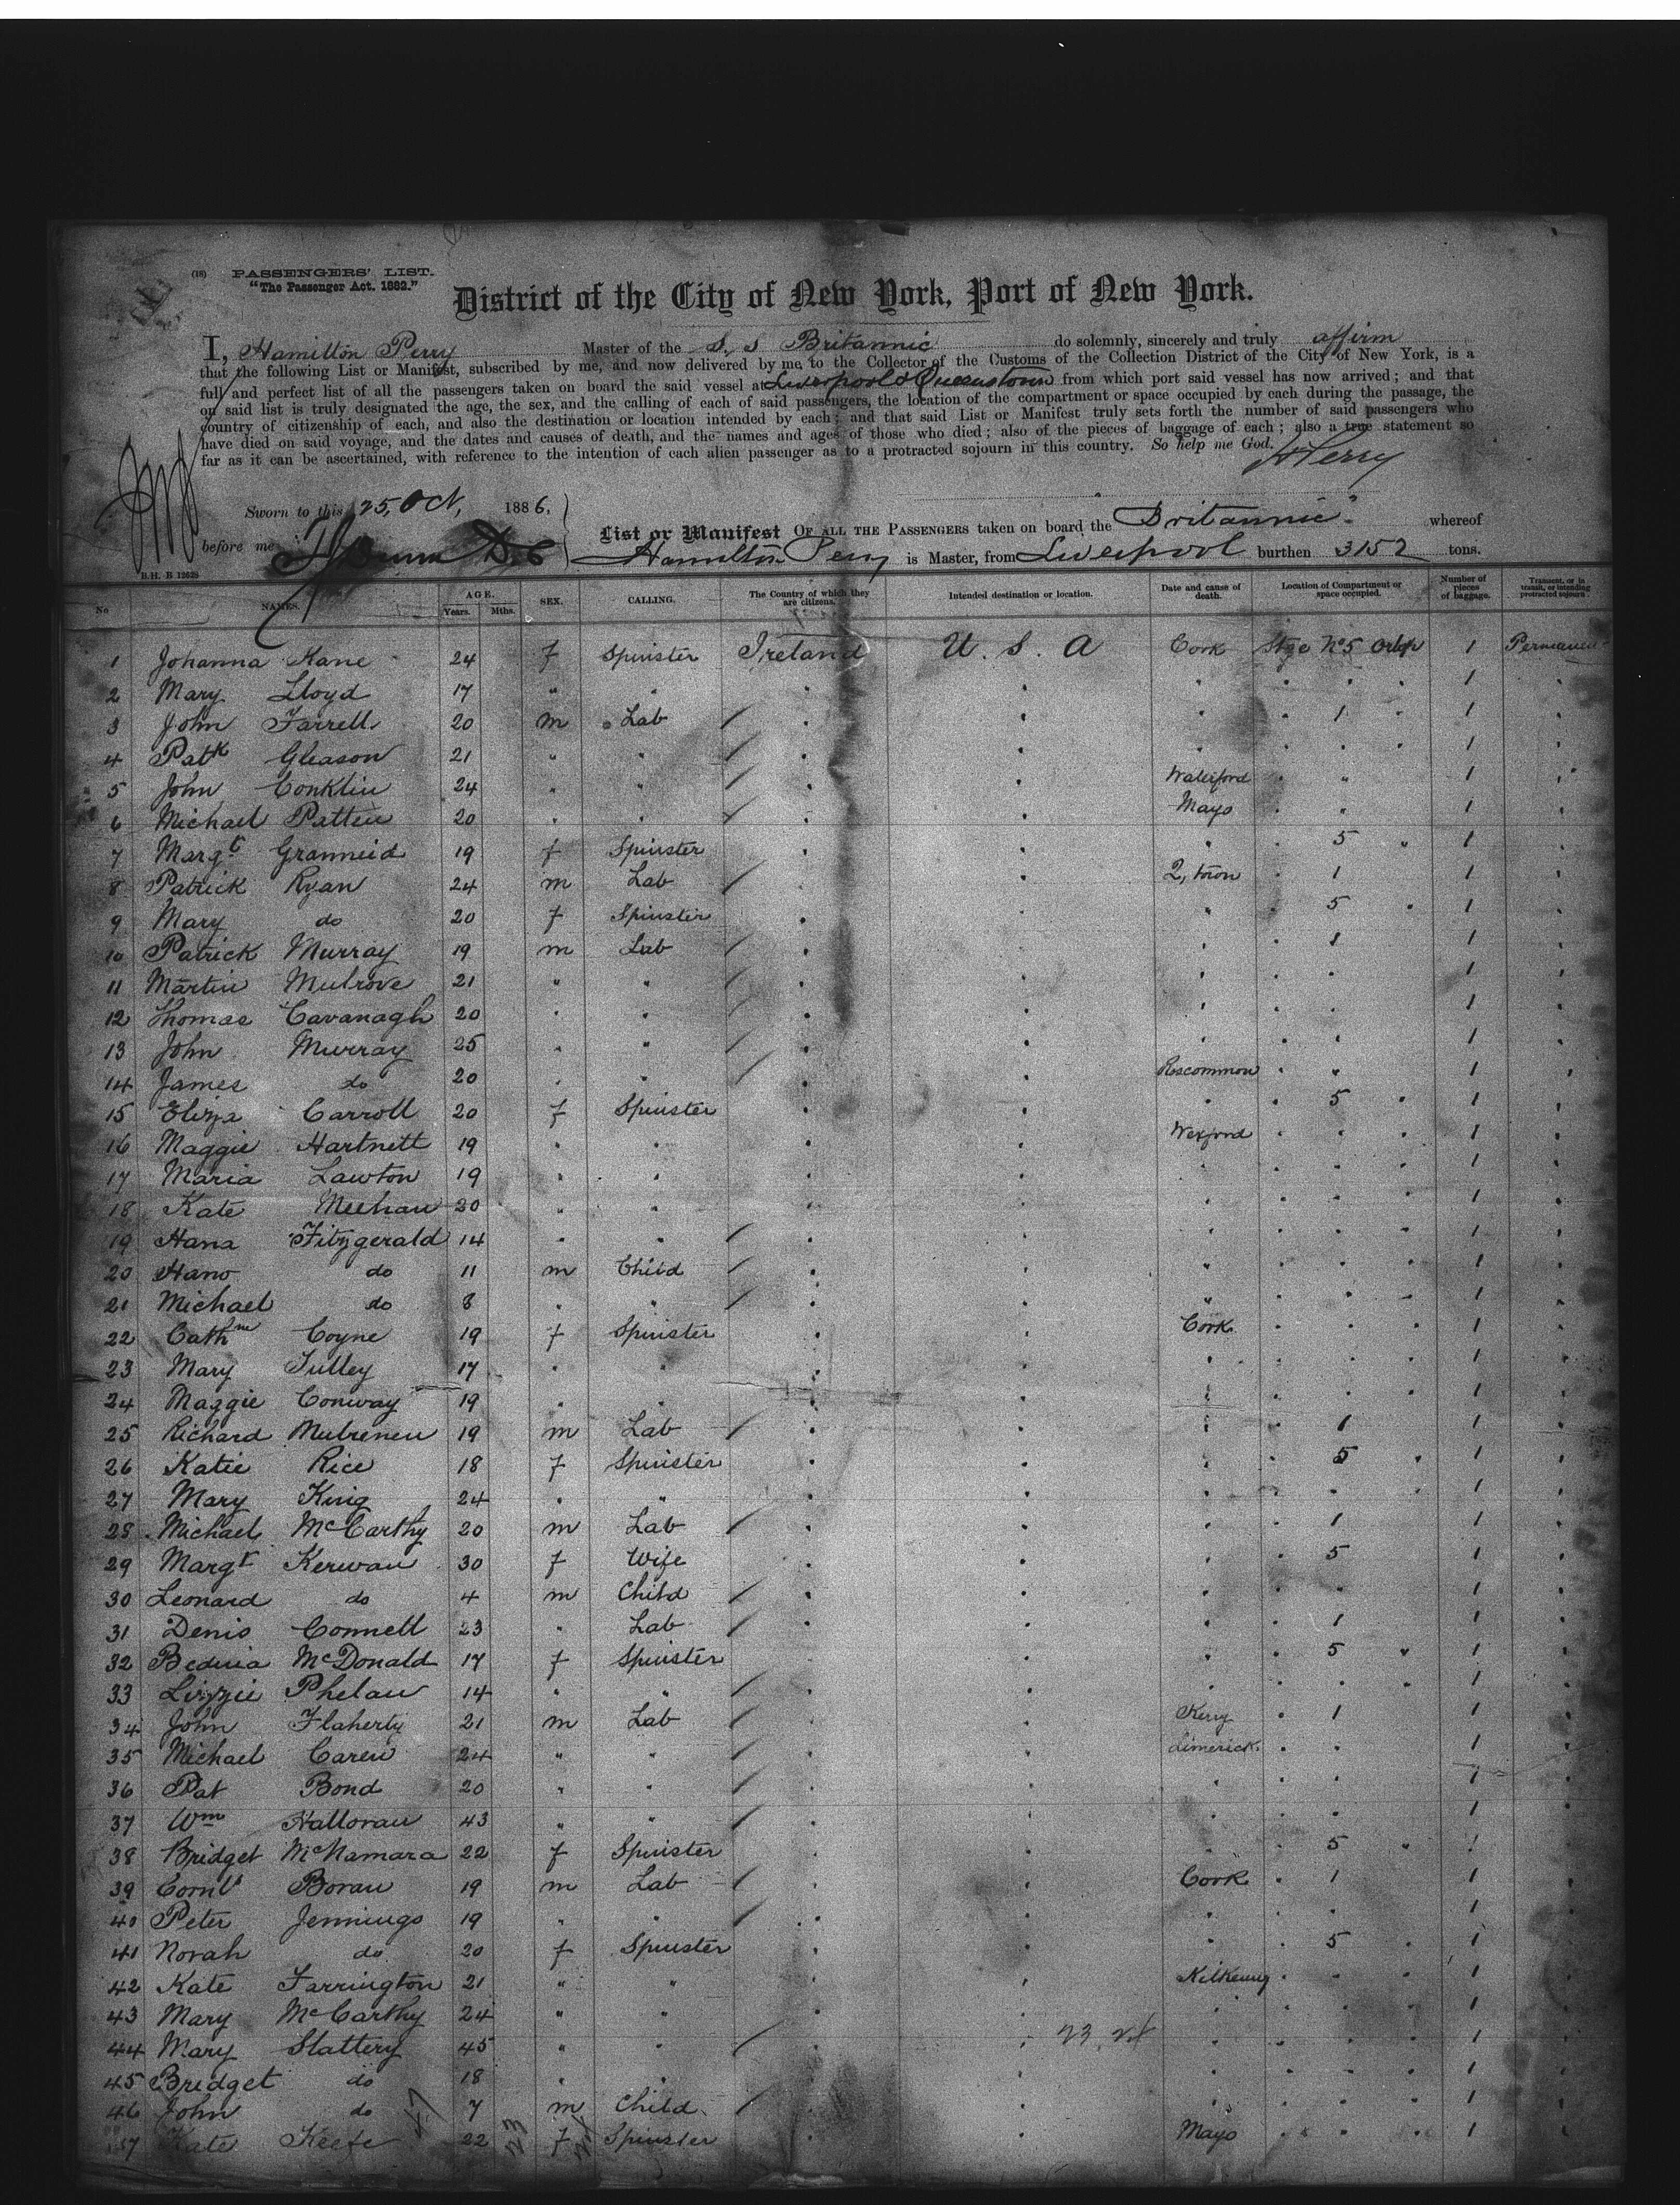 (18) PASSENGERS' LIST.
"The Passenger Act. 1882."
District of the City of New York, Port of New York.
I, Hamilton Perry Master of the S. S Britannic do solemnly, sincerely and truly affirm
that the following List or Manifest, subscribed by me, and now delivered by me, to the Collector of the Customs of the Collection District of the City of New York, is a
full and perfect list of all the passengers taken on board the said vessel at Liverpool & Queenstown from which port said vessel has now arrived; and that
on said list is truly designated the age, the sex, and the calling of each of said passengers, the location of the compartment or space occupied by each during the passage, the
country of citizenship of each, and also the destination or location intended by each; and that said List or Manifest truly sets forth the number of said passengers who
have died on said voyage, and the dates and causes of death, and the names and ages of those who died; also of the pieces of baggage of each; also a true statement so
far as it can be ascertained, with reference to the intention of each alien passenger as to a protracted sojourn in this country. So help me God.
HPerry
Sworn to this 25, Oct, 1886.
before me D. C
List or Manifest OF ALL THE PASSENGERS taken on board the "Britannic" whereof
Hamilton Perry is Master, from Liverpool burthen 3152 tons.
B.H. B 12628
No NAMES. AGE. Years. Mths. SEX. CALLING. The Country of which they are citizens. Intended destination or location. Date and cause of death. Location of Compartment or space occupied. Number of pieces of baggage. Transient, or in transit, or intending protracted sojourn.
1 Johanna Kane 24 f Spinster Ireland U. S. A Cork Stge No 5 Orlop 1 Permanent
2 Mary Lloyd 17 " " " " " " " " 1 "
3 John Farrell 20 m Lab / " " " " 1 " 1 "
4 Patk Gleason 21 " " / " " " " " " 1 "
5 John Conklin 24 " " / " " Waterford " " 1 "
6 Michael Patten 20 " " / " " Mayo " " 1 "
7 Margt Granneid 19 f Spinster " " " " 5 " 1 "
8 Patrick Ryan 24 m Lab / " " Q, town " 1 1 "
9 Mary do 20 f Spinster " " " " 5 " 1 "
10 Patrick Murray 19 m Lab / " " " " 1 1 "
11 Martin Mulrove 21 " " / " " " " " 1 "
12 Thomas Cavanagh 20 " " / " " " " " 1 "
13 John Murray 25 " " / " " " " " 1 "
14 James do 20 " " / " " Roscommon " " 1 "
15 Eliza Carroll 20 f Spinster " " " " 5 " 1 "
16 Maggie Hartnett 19 " " " " Wexford " " " 1 "
17 Maria Lawton 19 " " " " " " " " 1 "
18 Kate Meehan 20 " " " " " " " " 1 "
19 Hana Fitzgerald 14 " " / " " " " " " 1 "
20 Hano do 11 m Child / " " " " " " 1 "
21 Michael do 8 " " / " " " " " " 1 "
22 Cathne Coyne 19 f Spinster " " Cork " " " 1 "
23 Mary Tulley 17 " " " " " " " " 1 "
24 Maggie Conway 19 " " " " " " " " 1 "
25 Richard Mulrenen 19 m Lab / " " " " 1 1 "
26 Katie Rice 18 f Spinster " " " " 5 " 1 "
27 Mary King 24 " " " " " " " " 1 "
28 Michael McCarthy 20 m Lab / " " " " 1 1 "
29 Margt Kerwan 30 f Wife " " " " 5 1 "
30 Leonard do 4 m Child / " " " " " " 1 "
31 Denis Connell 23 " Lab / " " " " 1 1 "
32 Bedina McDonald 17 f Spinster " " " " 5 " 1 "
33 Lizzie Phelan 14 " " / " " " " " " 1 "
34 John Flaherty 21 m Lab / " " Kerry " 1 1 "
35 Michael Carew 24 " " / " " Limerick " " 1 "
36 Pat Bond 20 " " / " " " " " 1 "
37 Wm Halloran 43 " " / " " " " " 1 "
38 Bridget McNamara 22 f Spinster " " " " 5 " 1 "
39 Cornls Boran 19 m Lab / " " Cork " 1 1 "
40 Peter Jennings 19 " " / " " " " " 1 "
41 Norah do 20 f Spinster " " " " 5 " 1 "
42 Kate Farrington 21 " " " " Kilkenny " " " 1 "
43 Mary McCarthy 24 " " " " " " " " 1 "
44 Mary Slattery 45 " " / " " 23. 24 " " " " 1 "
45 Bridget do 18 " " " " " " " " 1 "
46 John do 7 m Child / " " " " " " 1 "
47 Kate Keefe 22 f Spinster " " Mayo " " " 1 "
47 23 24